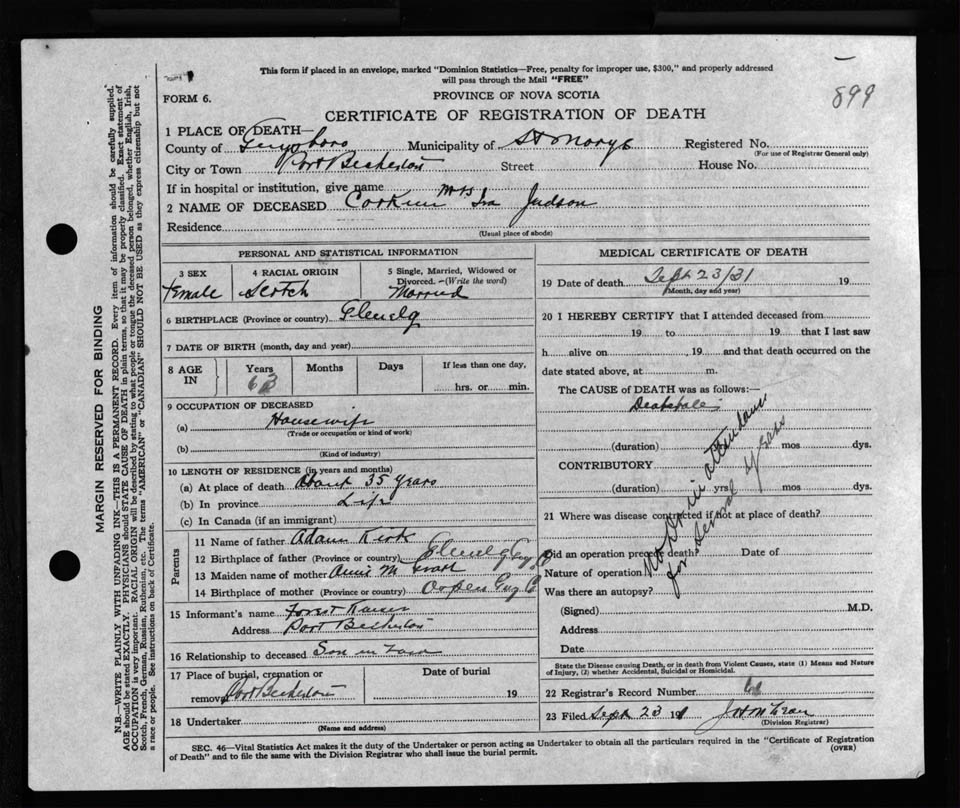 This form if placed in an envelope, marked "Dominion Statistics—Free, penalty for improper use, $300," and properly addressed
will pass through the Mail "FREE"
899
FORM 6.
PROVINCE OF NOVA SCOTIA
CERTIFICATE OF REGISTRATION OF DEATH
1 PLACE OF DEATH—
County of Guysboro Municipality of St Marys Registered No.
(For use of Registrar General only)
City or Town Port Beckerton Street House No.
If in hospital or institution, give name
2 NAME OF DECEASED Corkum Mrs Ira Judson
Residence
(Usual place of abode)
PERSONAL AND STATISTICAL INFORMATION
3 SEX 4 RACIAL ORIGIN 5 Single, Married, Widowed or
Divorced.—(Write the word)
Female Scotch Married
6 BIRTHPLACE (Province or country) Glenelg
7 DATE OF BIRTH (month, day and year)
8 AGE IN Years Months Days If less than one day,
63 hrs. or min.
9 OCCUPATION OF DECEASED
(a) Housewife
(Trade or occupation or kind of work)
(b)
(Kind of industry)
10 LENGTH OF RESIDENCE (in years and months)
(a) At place of death About 35 years
(b) In province Life
(c) In Canada (if an immigrant)
Parents
11 Name of father Adam Kirk
12 Birthplace of father (Province or country) Glenelg Guy. Co
13 Maiden name of mother Annie M
14 Birthplace of mother (Province or country) Guy. Co
15 Informant's name Forrest Kaiser
Address Port Beckerton
16 Relationship to deceased Son in Law
17 Place of burial, cremation or Date of burial
removal Port Beckerton 19
18 Undertaker
(Name and address)
MEDICAL CERTIFICATE OF DEATH
19 Date of death Sept 23/31 19
(Month, day and year)
20 I HEREBY CERTIFY that I attended deceased from
19 to 19 that I last saw
h alive on , 19 and that death occurred on the
date stated above, at m.
The CAUSE of DEATH was as follows:—
(duration) mos dys.
CONTRIBUTORY
(duration) yrs mos dys.
No Dr in attendance
for several years
21 Where was disease contracted if not at place of death?
Did an operation precede death? Date of
Nature of operation
Was there an autopsy?
(Signed) M.D.
Address
Date
State the Disease causing Death, or in death from Violent Causes, state (1) Means and Nature
of Injury, (2) whether Accidental, Suicidal or Homicidal.
22 Registrar's Record Number
23 Filed Sept 23 19
(Division Registrar)
SEC. 46—Vital Statistics Act makes it the duty of the Undertaker or person acting as Undertaker to obtain all the particulars required in the "Certificate of Registration
of Death" and to file the same with the Division Registrar who shall issue the burial permit.
(OVER)
MARGIN RESERVED FOR BINDING
N.B.—WRITE PLAINLY WITH UNFADING INK—THIS IS A PERMANENT RECORD. Every item of information should be carefully supplied.
AGE should be stated EXACTLY. PHYSICIANS should STATE CAUSE OF DEATH in plain terms, so that it may be properly classified. Exact statement of
OCCUPATION is very important. RACIAL ORIGIN will be described by stating to what people or tongue the deceased person belonged, whether English, Irish,
Scotch, French, German, Russian, Ruthenian, etc. The terms "AMERICAN" or "CANADIAN" SHOULD NOT BE USED as they express citizenship but not
a race or people. See instructions on back of Certificate.